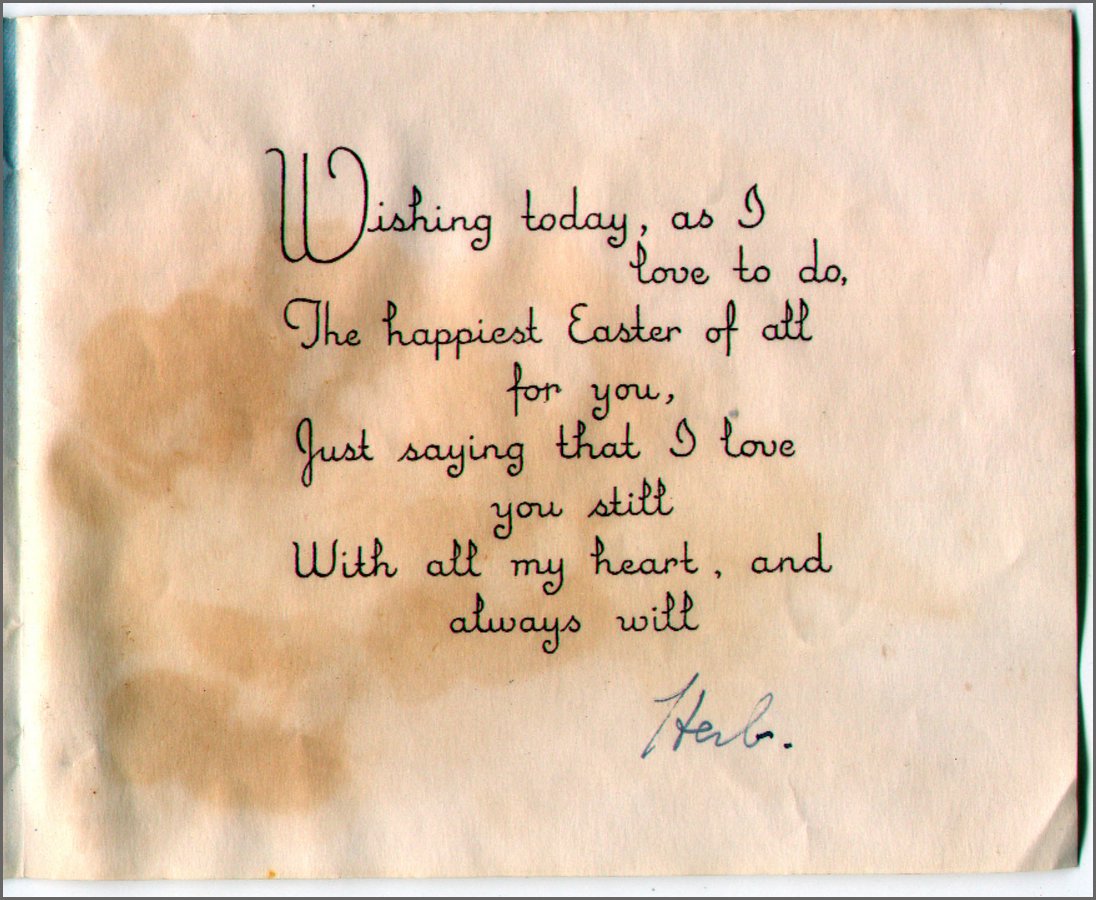 Wishing today, as I
love to do,
The happiest Easter of all
for you,
Just saying that I love
you still
With all my heart, and
always will
Herb.